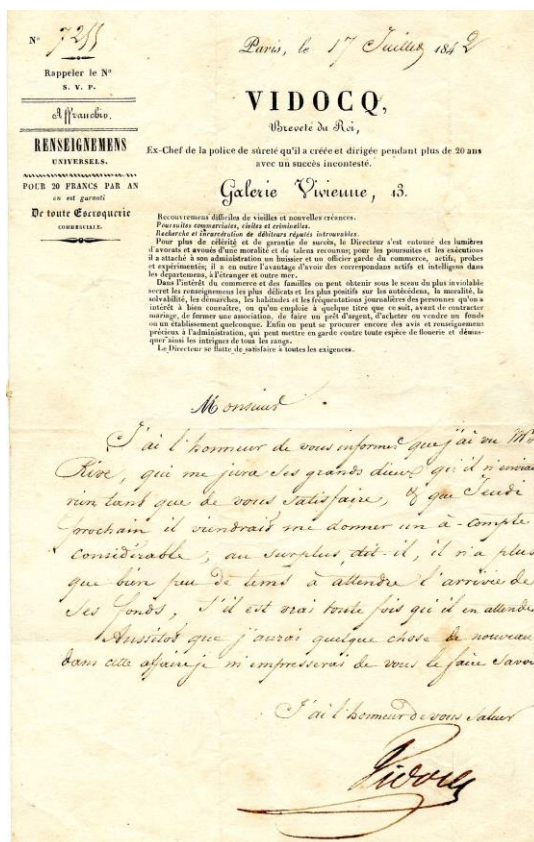 N° 7255
Rappeler le N°
S. V. P.
Affranchir.
RENSEIGNEMENS
UNIVERSELS.
POUR 20 FRANCS PAR AN
on est garanti
De toute Escroquerie
COMMERCIALE.
Paris, le 17 Juillet 1842
VIDOCQ,
Breveté du Roi,
Ex-Chef de la police de sûreté qu'il a créée et dirigée pendant plus de 20 ans
avec un succès incontesté.
Galerie Vivienne, 13.
Recouvremens difficiles de vieilles et nouvelles créances.
Poursuites commerciales, civiles et criminelles.
Recherche et incarcération de débiteurs réputés introuvables.
Pour plus de célérité et de garantie de succès, le Directeur s'est entouré des lumières
d'avocats et avoués d'une moralité et de talens reconnus; pour les poursuites et les exécutions
il a attaché à son administration un huissier et un officier garde du commerce, actifs, probes
et expérimentés; il a en outre l'avantage d'avoir des correspondans actifs et intelligens dans
les departemens, à l'étranger et outre mer.
Dans l'intérêt du commerce et des familles on peut obtenir sous le sceau du plus inviolable
secret les renseignemens les plus délicats et les plus positifs sur les antécédens, la moralité, la
solvabilité, les démarches, les habitudes et les fréquentations journalières des personnes qu'on a
intérêt à bien connaître, ou qu'on emploie à quelque titre que ce soit, avant de contracter
mariage, de former une association, de faire un prêt d'argent, d'acheter ou vendre un fonds
ou un établissement quelconque. Enfin on peut se procurer encore des avis et renseignemens
précieux à l'administration, qui peut mettre en garde contre toute espèce de flouerie et démas-
quer ainsi les intrigues de tous les rangs.
Le Directeur se flatte de satisfaire à toutes les exigences.
Monsieur
J'ai l'honneur de vous informer que j'ai vu Mr
Rive, qui me jura ses grands dieux qu'il n'enviait
rien tant que de vous satisfaire, & que Jeudi
prochain il viendrait me donner un à-compte
considérable, au surplus, dit-il, il n'a plus
que bien peu de tems à attendre l'arrivée de
ses fonds, s'il est vrai toute fois qu'il en attende
Aussitot que j'aurai quelque chose de nouveau
dans cette affaire je m'empresserai de vous le faire savoir
J'ai l'honneur de vous saluer
Vidocq